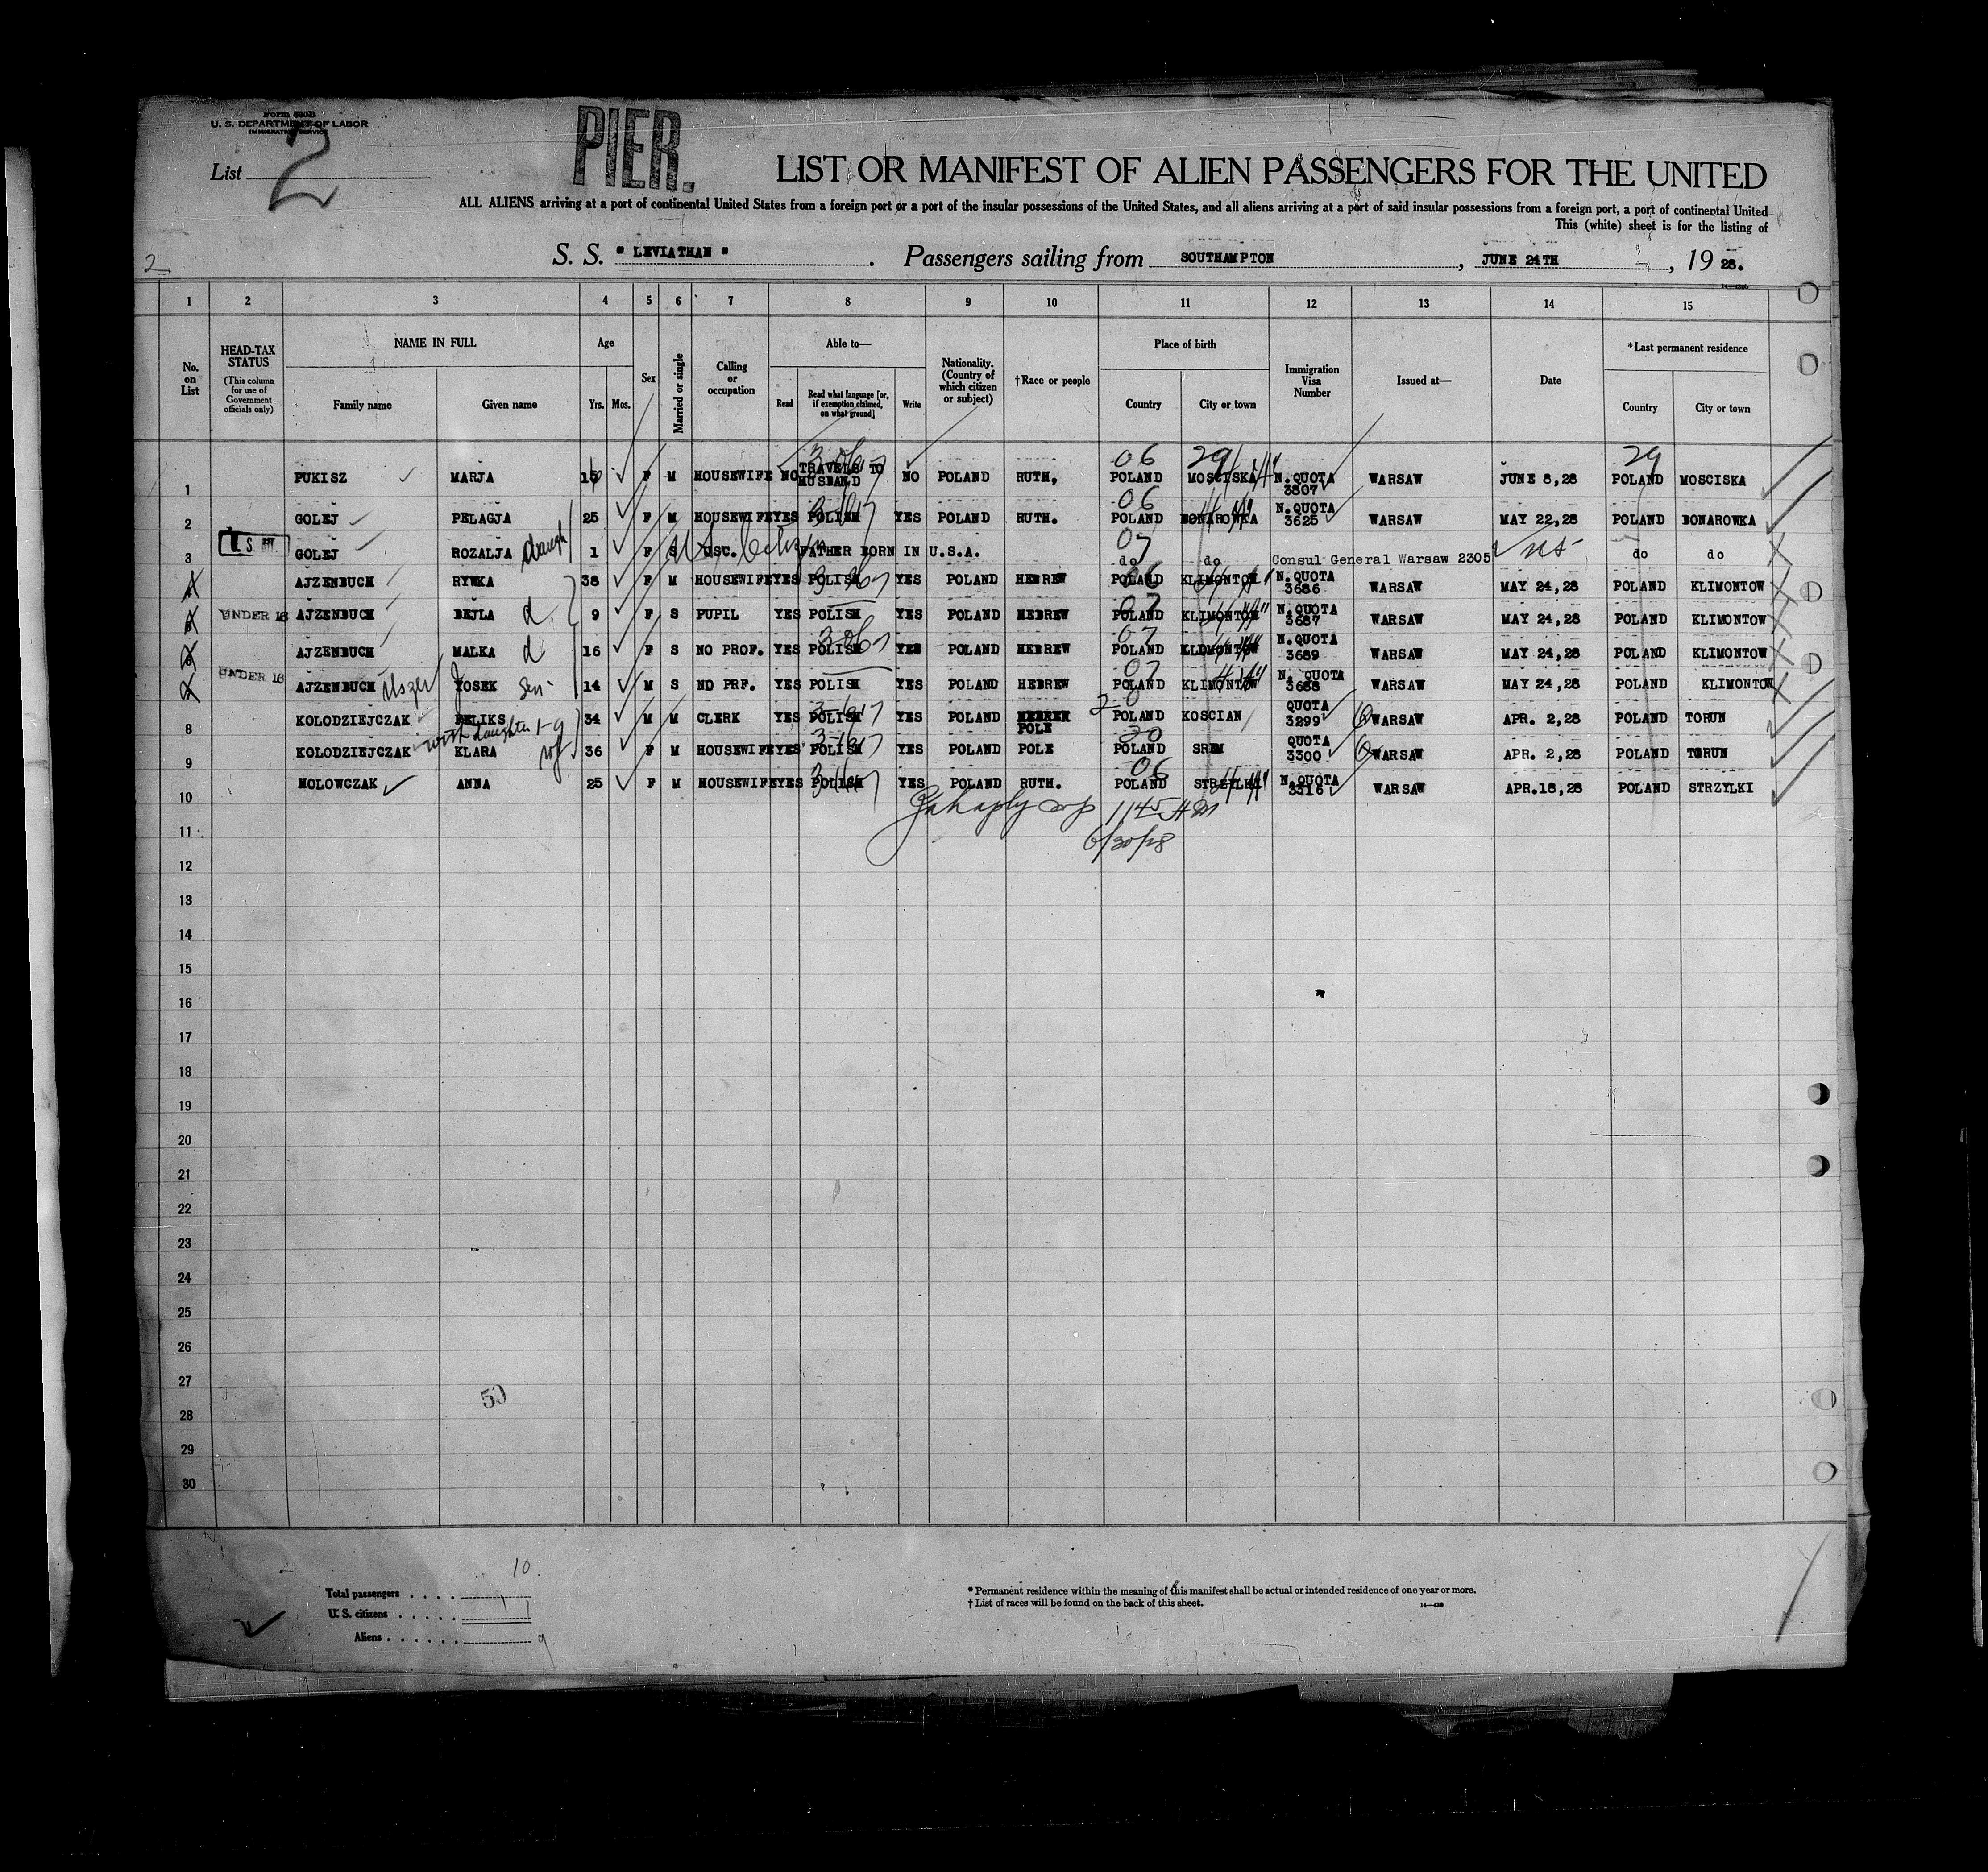 Form 500B
U. S. DEPARTMENT OF LABOR
IMMIGRATION SERVICE
List 2
PIER.
LIST OR MANIFEST OF ALIEN PASSENGERS FOR THE UNITED
ALL ALIENS arriving at a port of continental United States from a foreign port or a port of the insular possessions of the United States, and all aliens arriving at a port of said insular possessions from a foreign port, a port of continental United
This (white) sheet is for the listing of
2
S. S. " LEVIATHAN " . Passengers sailing from SOUTHAMPTON , JUNE 24TH , 19 28.
1 2 3 4 5 6 7 8 9 10 11 12 13 14 15
No. on List
HEAD-TAX STATUS (This column for use of Government officials only)
NAME IN FULL Family name Given name
Age Yrs. Mos.
Sex
Married or single
Calling or occupation
Able to— Read Read what language [or, if exemption claimed, on what ground] Write
Nationality. (Country of which citizen or subject)
†Race or people
Place of birth Country City or town
Immigration Visa Number
Issued at—
Date
*Last permanent residence Country City or town
1 PUKISZ MARJA F M HOUSEWIFE NO TRAVELS TO HUSBAND NO POLAND RUTH. 06 POLAND 29 MOSCISKA N.QUOTA 3807 WARSAW JUNE 8,28 29 POLAND MOSCISKA
2 GOLEJ PELAGJA 25 F M HOUSEWIFE YES POLISH YES POLAND RUTH. 06 POLAND BONAROWKA N.QUOTA 3625 WARSAW MAY 22,28 POLAND BONAROWKA
3 U. S. GOLEJ ROZALJA daugh 1 F S USC. FATHER BORN IN U.S.A. 07 do do Consul General Warsaw 2305 do do
4 AJZENBUCH RYWKA 38 F M HOUSEWIFE YES POLISH YES POLAND HEBREW 06 POLAND KLIMONTOW N.QUOTA 3686 WARSAW MAY 24,28 POLAND KLIMONTOW
5 UNDER 16 AJZENBUCH BEJLA d 9 F S PUPIL YES POLISH YES POLAND HEBREW 07 POLAND KLIMONTOW N.QUOTA 3687 WARSAW MAY 24,28 POLAND KLIMONTOW
6 AJZENBUCH MALKA d 16 F S NO PROF. YES POLISH YES POLAND HEBREW 07 POLAND KLIMONTOW N.QUOTA 3689 WARSAW MAY 24,28 POLAND KLIMONTOW
7 UNDER 16 AJZENBUCH Uszer YOSEK son 14 M S NO PRF. YES POLISH YES POLAND HEBREW 07 POLAND KLIMONTOW N. QUOTA 3688 WARSAW MAY 24,28 POLAND KLIMONTOW
8 KOLODZIEJCZAK FELIKS 34 M M CLERK YES POLISH YES POLAND HEBREW POLE POLAND KOSCIAN QUOTA 3299 WARSAW APR. 2,28 POLAND TORUN
9 KOLODZIEJCZAK KLARA wf 36 F M HOUSEWIFE YES POLISH YES POLAND POLE 20 POLAND SREM QUOTA 3300 WARSAW APR. 2,28 POLAND TORUN
10 HOLOWCZAK ANNA 25 F M HOUSEWIFE YES POLISH YES POLAND RUTH. 06 POLAND STRZYLKI N.QUOTA 3316 WARSAW APR.18,28 POLAND STRZYLKI
1145 AM
11
6/30/28
12
13
14
15
16
17
18
19
20
21
22
23
24
25
26
27
28
29
30
10
Total passengers . . . .
U. S. citizens . . . . . . 1
Aliens . . . . . . 9
* Permanent residence within the meaning of this manifest shall be actual or intended residence of one year or more.
† List of races will be found on the back of this sheet.